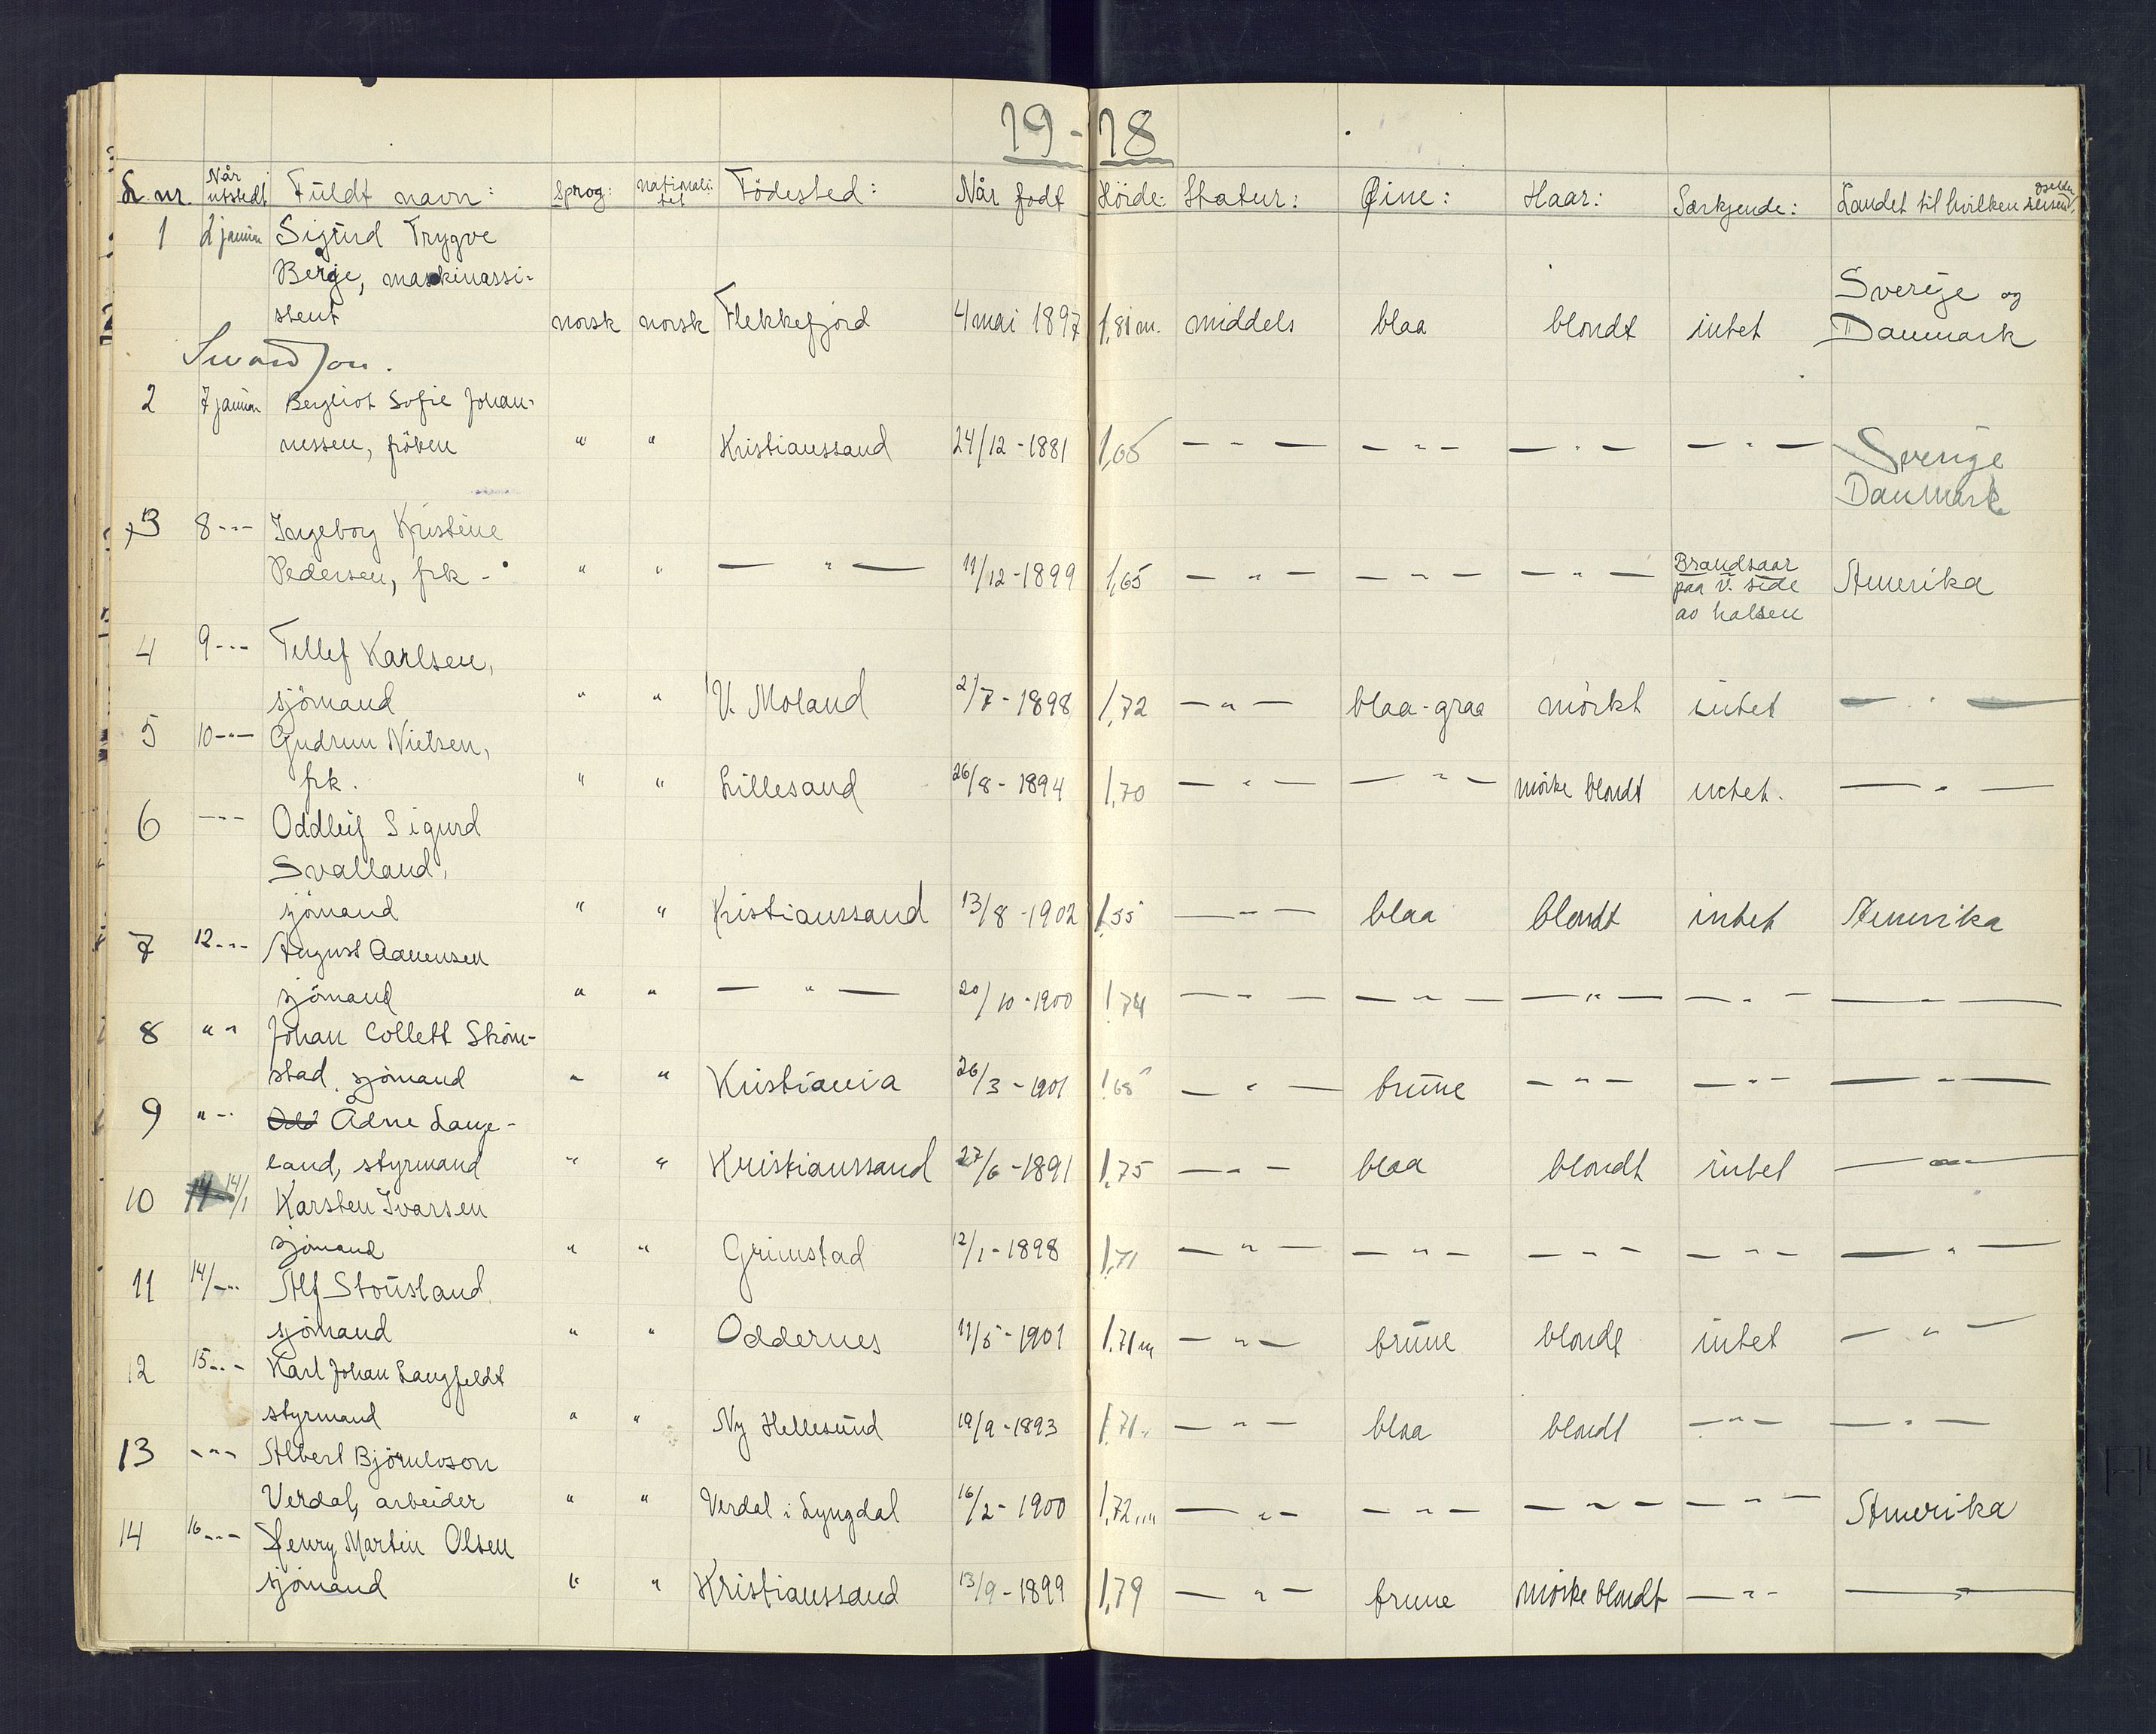 19-18
L. nr. Når utstedt Füldt navn: Sprog: nationali-tet Födested: Når født Höide: Statur: Øine: Haar: Særkjende: Landet til hvilken
1 2 januar Sigürd Trygve
Berge, maskinassi-
stent norsk norsk Flekkefjord 4 mai 1897 1,81 m. middels blaa blondt intet Sverige og Danmark
2 7 januar Bergliot Sofie Johan-
nessen, fröken " " Kristianssand 24/12-1881 1,65 — " — — " — — " — — " — Sverige
Danmark
3 8 - " - Ingeborg Kristine
Pedersen, frk - " " — " — 11/12-1899 1,65 — " — — " — — " — Brandsaar paa v. side av halsen Amerika
4 9 - " - Tellef Karlsen,
sjömand " " V. Moland 2/7-1898 1,72 — " — blaa-graa mörkt intet — " —
5 10 - " - Gudrun Nielsen,
frk. " " Lillesand 26/8-1894 1,70 — " — — " — mörke blondt intet. — " —
6 - " - Oddleif Sigurd
Svalland,
sjömand " " Kristianssand 13/8-1902 1,55 — " — blaa blondt intet Amerika
7 12 - " - August Aanensen
sjömand " " — " — 20/10-1900 1,74 — " — — " — — " — — " — — " —
8 " - Johan Collett Ström-
stad, sjömand " " Kristiania 26/3-1901 1,68 — " — brüne — " — — " — — " —
9 " - Odd Ådne Lange-
land, styrmand " " Kristianssand 27/6-1891 1,75 — " — blaa blondt intet — " —
10 14 14/1 Karsten Ivarsen
sjömand " " Grimstad 12/1-1898 1,71 — " — — " — — " — — " — — " —
11 14/ - " - Alf Stousland
sjömand " " Oddernes 11/5-1901 1.71 m — " — brüne blondt intet — " —
12 15 - " - Karl Johan Langfeldt
styrmand " " Ny Hellesünd 19/9-1893 1,71 " — " — blaa blondt — " — — " —
13 - " - Albert Björnulvson
Verdal, arbeider " " Verdal i Lyngdal 16/2-1900 1,72 m — " — — " — — " — — " — Amerika
14 16 - " - Henry Martin Olsen
sjömand " " Kristianssand 13/9-1899 1,79 — " — brune mörke blondt — " — — " —